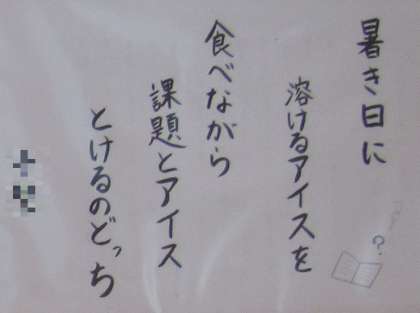 暑き日に
溶けるアイスを
食べながら
課題とアイス
とけるのどっち
?